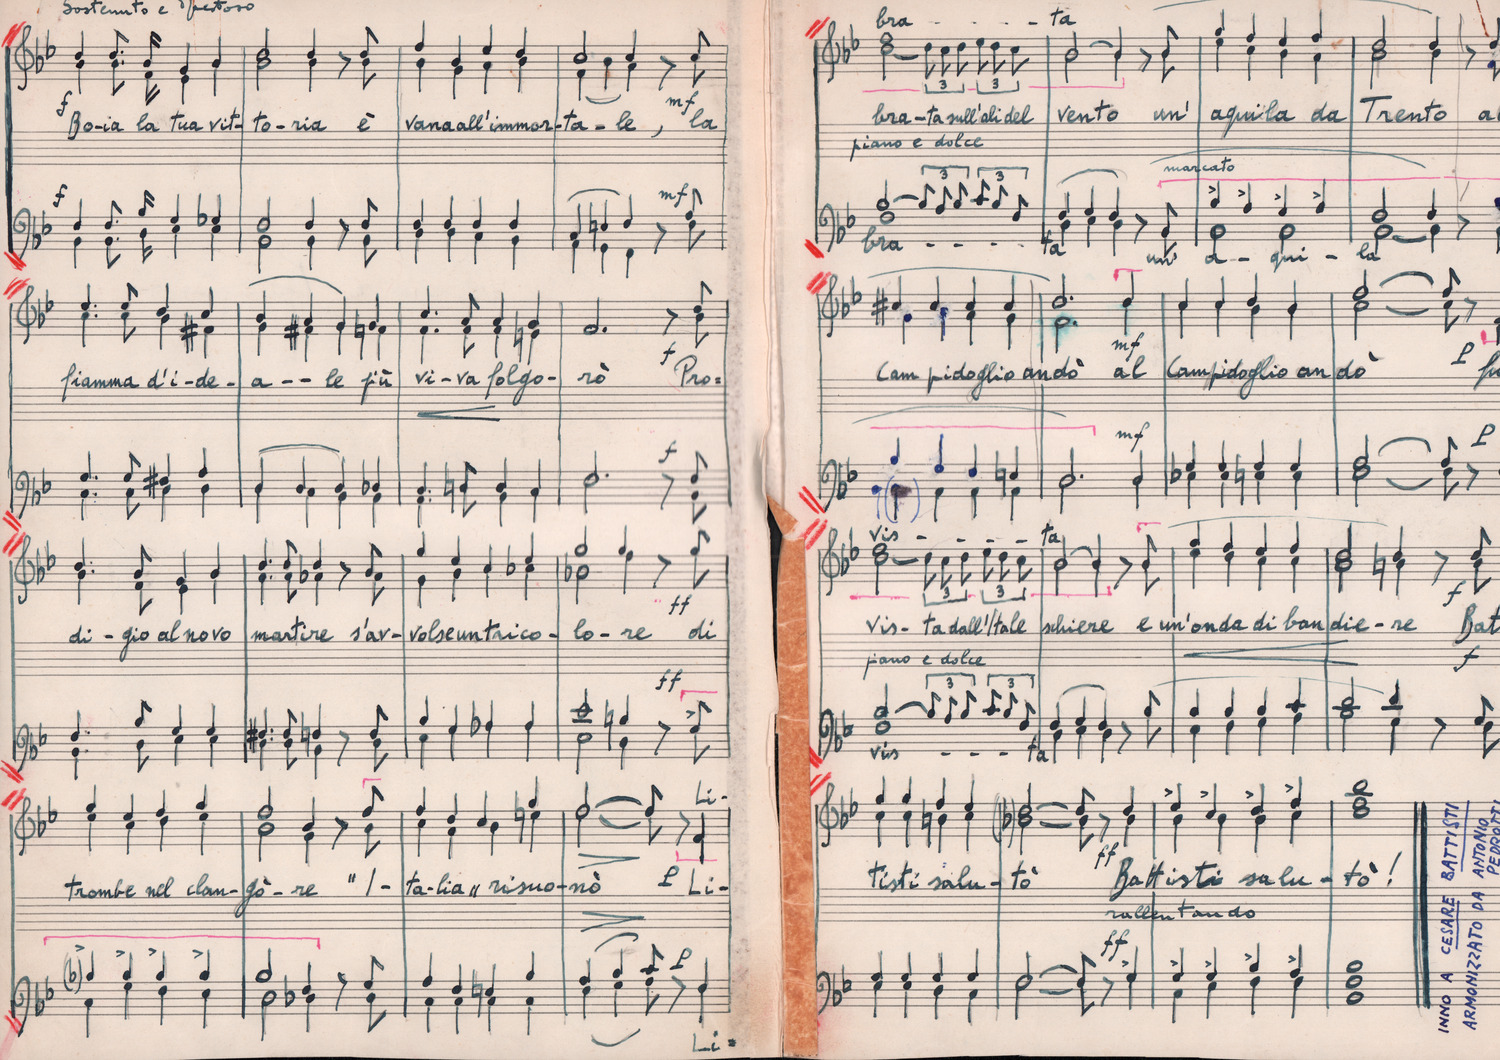 Sostenuto e Maestoso
f mf
Bo-ia la tua vit-to-ria è vana all'immor-ta-le, la
f mf
f
fiamma d'i-de-a--le più vi-va folgo-rò Pro=
f
ff
di-gio al novo martire s'av-volse un trico-lo-re di
ff
Li-
trombe nel clan-gò-re "I-ta-lia" risuo-nò p Li-
p
Li=
bra - - - - ta
3 3
bra-ta sull'ali del vento un' aquila da Trento al
piano e dolce
marcato
3 3
bra - - - - ta un' a-- qui - la
mf p
Campidoglio andò al Campidoglio andò
mf p
vis - - - - ta
3 3 f
vis-ta dall'Itale schiere e un'onda di bandie-re Bat
piano e dolce f
3 3
vis - - - ta
ff
tisti salu-tò Battisti salu-tò!
rallentando
ff
INNO A CESARE BATTISTI
ARMONIZZATO DA ANTONIO PEDROTTI